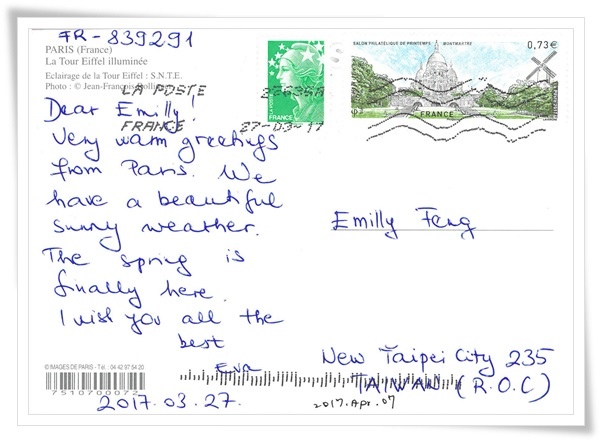 FR-839291
PARIS (France)
La Tour Eiffel illuminée
Eclairage de la Tour Eiffel : S.N.T.E.
Photo : © Jean-François
LA POSTE
FRANCE
27-03-17
FRANCE
SALON PHILATÉLIQUE DE PRINTEMPS MONTMARTRE
0,73€
FRANCE
Dear Emilly!
Very warm greetings
from Paris. We
have a beautiful
sunny weather.
The spring is
finally here.
I wish you all the
best
Eva
2017.03.27.
Emilly Feng
New Taipei City 235
TAIWAN (R.O.C)
2017.Apr.07
© IMAGES DE PARIS - Tél. : 04 42 97 54 20
7510700072